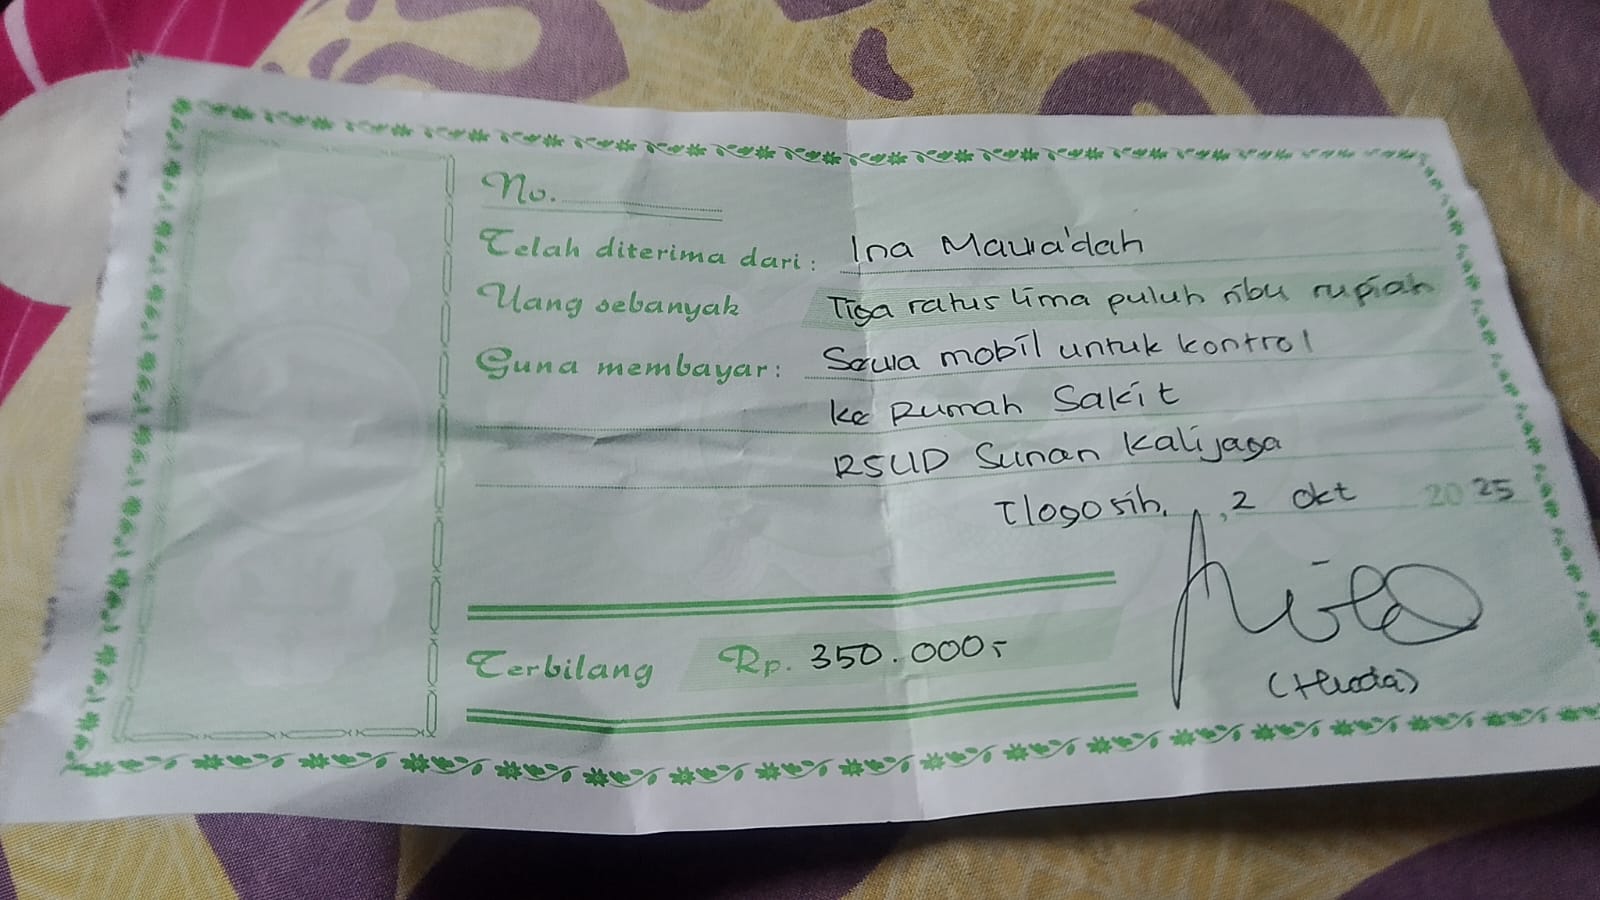 No.
Telah diterima dari: Ina Mawa'dah
Uang sebanyak Tiga ratus lima puluh ribu rupiah
Guna membayar: Sewa mobil untuk kontrol
ke Rumah Sakit
RSUD Sunan Kalijaga
Tlogosih, , 2 Okt 2025
Terbilang Rp. 350.000,-
(Huda)